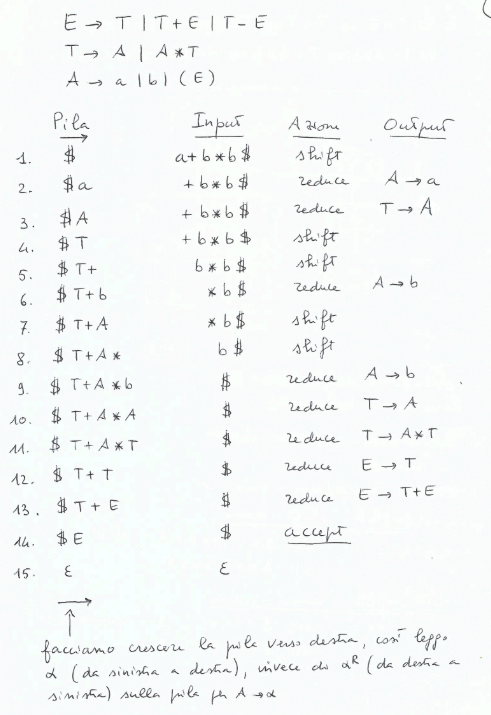 E → T | T + E | T - E
T → A | A * T
A → a | b | ( E )
Pila Input Azione Output
1. $ a + b * b $ shift
2. $ a + b * b $ reduce A → a
3. $ A + b * b $ reduce T → A
4. $ T + b * b $ shift
5. $ T + b * b $ shift
6. $ T + b * b $ reduce A → b
7. $ T + A * b $ shift
8. $ T + A * b $ shift
9. $ T + A * b $ reduce A → b
10. $ T + A * A $ reduce T → A
11. $ T + A * T $ reduce T → A * T
12. $ T + T $ reduce E → T
13. $ T + E $ reduce E → T + E
14. $ E $ accept
15. ε ε
facciamo crescere la pila verso destra, così leggo
α (da sinistra a destra), invece di α^R (da destra a
sinistra) sulla pila per A → α